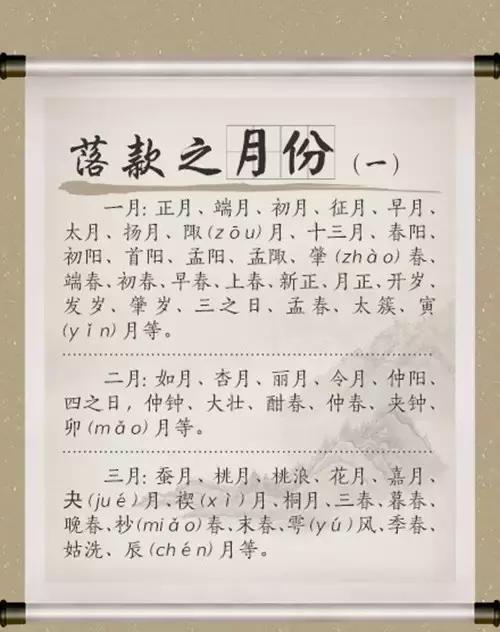 落款之月份(一)
一月:正月、端月、初月、征月、早月、
太月、扬月、陬(zōu)月、十三月、春阳、
初阳、首阳、孟阳、孟陬、肇(zhào)春、
端春、初春、早春、上春、新正、月正、开岁、
发岁、肇岁、三之日、孟春、太簇、寅
(yǐn)月等。
二月:如月、杏月、丽月、令月、仲阳、
四之日,仲钟、大壮、酣春、仲春、夹钟、
卯(mǎo)月等。
三月:蚕月、桃月、桃浪、花月、嘉月、
夬(jué)月、禊(xì)月、桐月、三春、暮春、
晚春、杪(miǎo)春、末春、雩(yú)风、季春、
姑洗、辰(chén)月等。